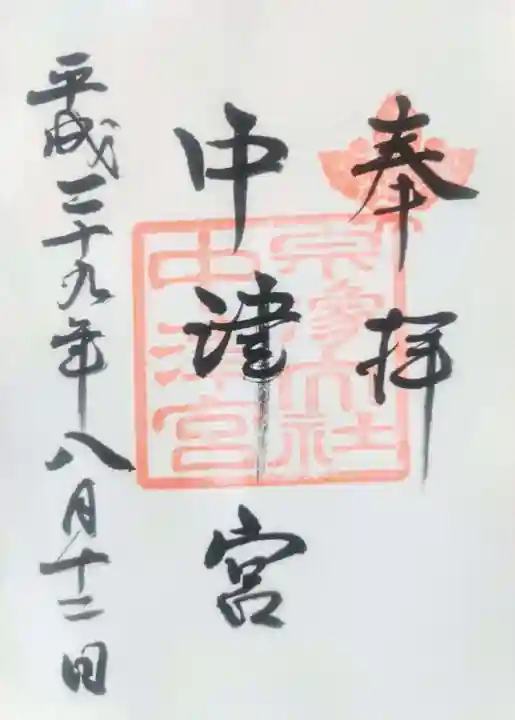 奉拝
中津宮
平成二十九年八月十二日
宗像大社
中津宮